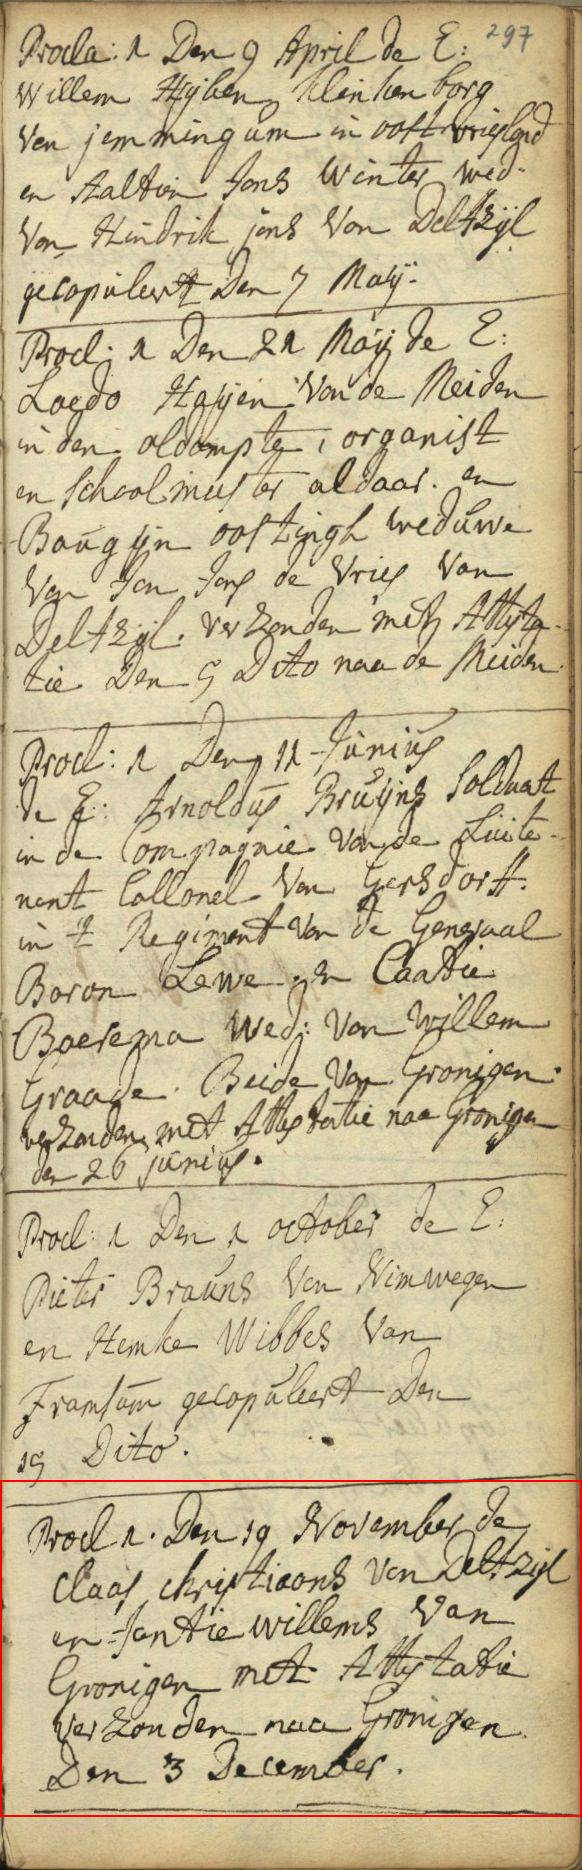 297
Procla: 1 Den 9 April de E:
Willem Hijben Klinkenborg
Van jemmingum in oostvriesland
en Aaltien Jans Winter wed.
Van Hindrik jans Van Delfzijl
gecopuleert Den 7 Maij.
Procl: 1 Den 21 Maij de E:
Loedo Haijen Van de Meiden
in den oldampte, organist
en schoolmeister aldaar. en
Baugijn oostingh weduwe
Van Jan Jans de Vries Van
Delfzijl. verzonden met Attesta-
tie Den 5 Dito naa de Meiden
Procl: 1 Den 11 Junius
de E: Arnoldus Bruijns Solduat
in de Compagnie Van de Luite-
nant Collonel Van Gersdorff.
in 't Regiment Van de Generaal
Baron Lewe en Caatie
Boerema wed: Van Willem
Graade. Beide Van Gronigen.
verzonden met Attestatie naa Gronigen
den 26 junius.
Procl: 1 Den 1 october de E:
Pieter Brauns Van Nimwegen
en Hemke Wibbes Van
Framsum gecopuleert Den
15 Dito.
Procl 1. Den 19 November de
Claas christiaans Van Delfzijl
en Jantie willems Van
Gronigen met Attestatie
Verzonden naa Gronigen
Den 3 December.